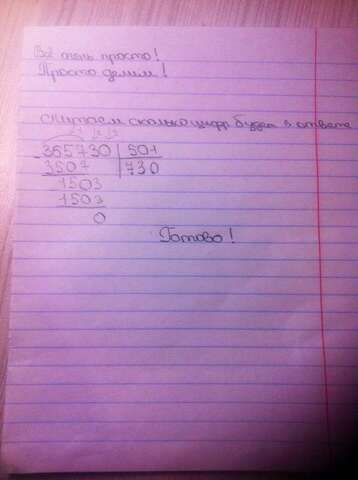 Всё очень просто!
Просто делим!
считаем сколько цифр будет в ответе
1 2 3
365730 501
3507 730
1503
1503
0
Готово!